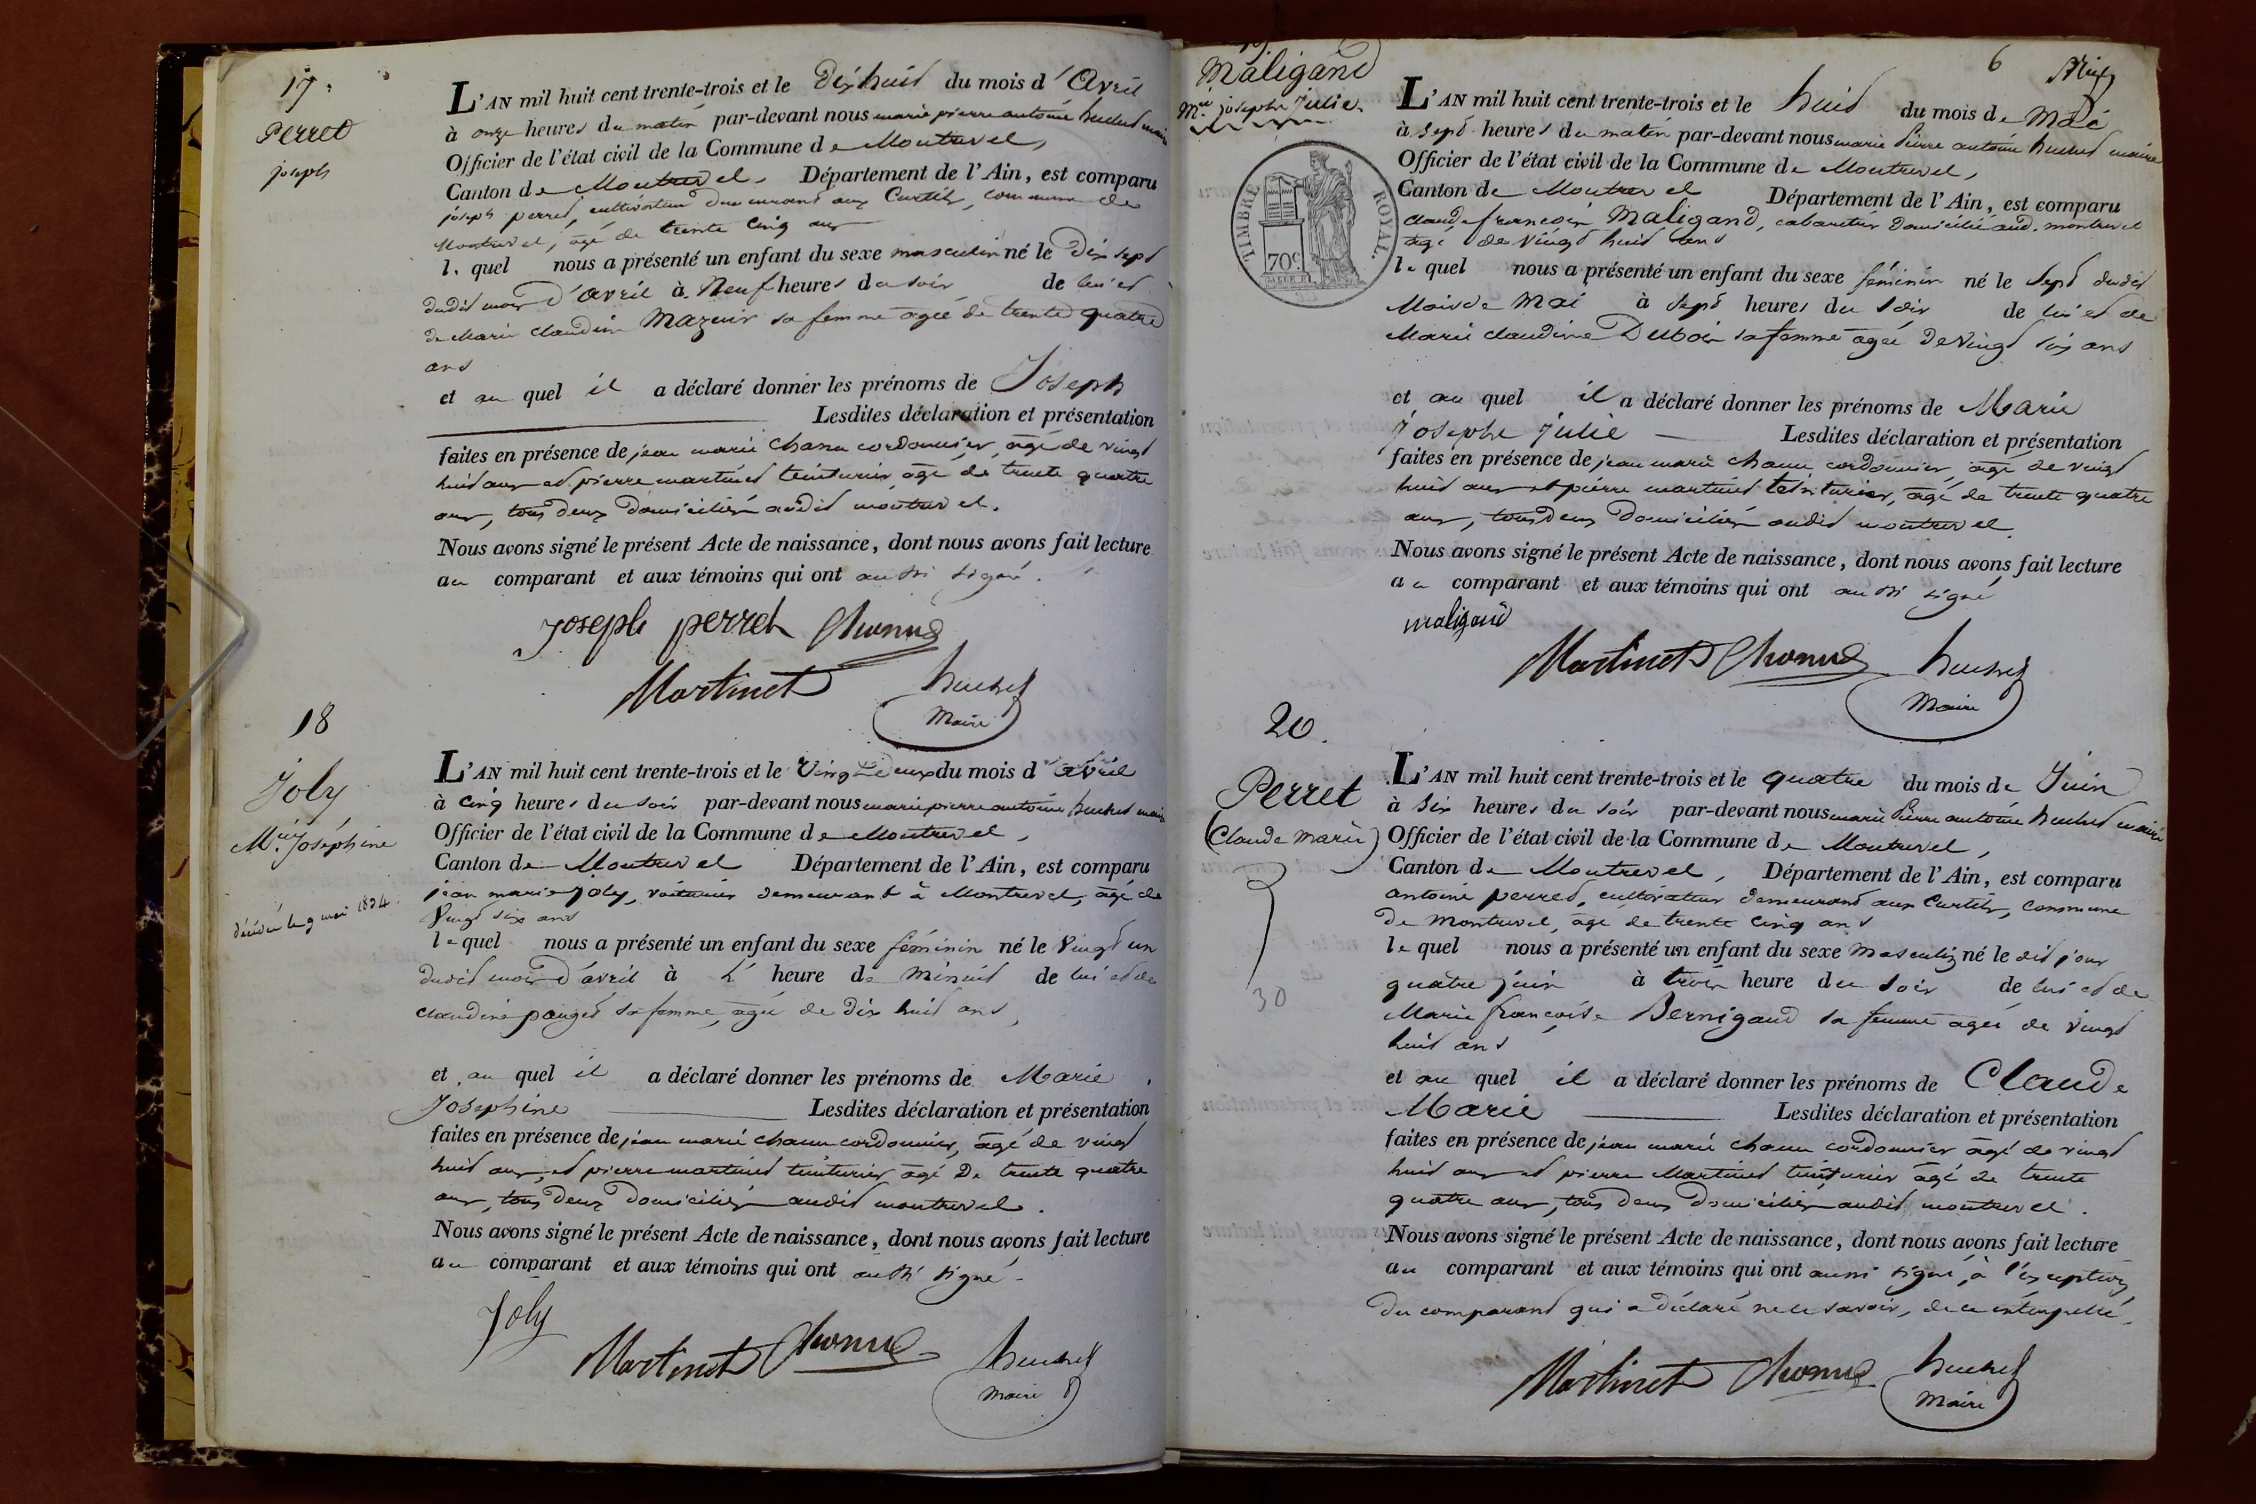 17.
Perret
joseph
L'AN mil huit cent trente-trois et le Dix huit du mois d'Avril
à onze heures du matin par-devant nous marie pierre antoine huchet maire
Officier de l'état civil de la Commune de Montrevel,
Canton de Montrevel, Département de l'Ain, est comparu
joseph perret, cultivateur demeurant aux Curtils, commune de
Montrevel, agé de trente cinq ans
lequel nous a présenté un enfant du sexe masculin né le Dix sept
dudit mois d'avril à Neuf heures du soir de lui et
de Marie Claudine Mazuir sa femme agée de trente quatre
ans
et au quel il a déclaré donner les prénoms de Joseph
Lesdites déclaration et présentation
faites en présence de jean marie chanu cordonnier, agé de vingt
huit ans et pierre martinet teinturier agé de trente quatre
ans, tous deux domiciliés audit montrevel.
Nous avons signé le présent Acte de naissance, dont nous avons fait lecture
au comparant et aux témoins qui ont aussi signé.
joseph perret Chanu
Martinet huchet
Maire
18
Joly
Mie Joséphine
décédée le 9 mai 1834.
L'AN mil huit cent trente-trois et le Vingt Deux du mois d'avril
à cinq heures du soir par-devant nous marie pierre antoine huchet maire
Officier de l'état civil de la Commune de Montrevel,
Canton de Montrevel Département de l'Ain, est comparu
jean marie joly, voiturier demeurant à Montrevel, agé de
Vingt six ans
lequel nous a présenté un enfant du sexe féminin né le Vingt un
dudit mois d'avril à L' heure de Minuit de lui et de
claudine pauget sa femme, agée de dix huit ans,
et au quel il a déclaré donner les prénoms de Marie
Josephine Lesdites déclaration et présentation
faites en présence de jean marie chanu cordonnier, agé de vingt
huit ans, et pierre martinet teinturier agé De trente quatre
ans, tous deux domiciliés audit montrevel.
Nous avons signé le présent Acte de naissance, dont nous avons fait lecture
au comparant et aux témoins qui ont aussi signé.
Joly
Martinet Chanu huchet
Maire
6
19.
Maligand
Mie josephe Julie
TIMBRE ROYAL.
70c
L'AN mil huit cent trente-trois et le huit du mois de Mai
à sept heures du matin par-devant nous marie Pierre antoine huchet maire
Officier de l'état civil de la Commune de Montrevel,
Canton de Montrevel Département de l'Ain, est comparu
claude françois Maligand, cabaretier domicilié aud. montrevel
agé de vingt huit ans
lequel nous a présenté un enfant du sexe féminin né le sept dudit
Mois de Mai à sept heures du soir de lui et de
Marie claudine Dubois sa femme agée de vingt six ans
et au quel il a déclaré donner les prénoms de Marie
Josephe Julie Lesdites déclaration et présentation
faites en présence de jean marie chanu cordonnier, agé de vingt
huit ans et pierre martinet teinturier, agé de trente quatre
ans, tous deux domiciliés audit montrevel.
Nous avons signé le présent Acte de naissance, dont nous avons fait lecture
au comparant et aux témoins qui ont aussi signé
maligand
Martinet Chanu huchet
Maire
20.
Perret
(Claude Marie)
30
L'AN mil huit cent trente-trois et le quatre du mois de Juin
à six heures du soir par-devant nous marie Pierre antoine huchet maire
Officier de l'état civil de la Commune de Montrevel,
Canton de Montrevel, Département de l'Ain, est comparu
antoine perret, cultivateur demeurant aux Curtils, commune
de Montrevel, agé de trente cinq ans
lequel nous a présenté un enfant du sexe Masculin né le dit jour
quatre juin à trois heure du soir de lui et de
Marie françoise Bernigaud sa femme agée de vingt
huit ans
et au quel il a déclaré donner les prénoms de Claude
Marie Lesdites déclaration et présentation
faites en présence de jean marie chanu cordonnier agé de vingt
huit ans et pierre Martinet teinturier agé de trente
quatre ans, tous deux domiciliés audit montrevel.
Nous avons signé le présent Acte de naissance, dont nous avons fait lecture
au comparant et aux témoins qui ont aussi signé, à l'exception
du comparant qui a déclaré ne le savoir, de ce interpellé.
Martinet Chanu huchet
Maire